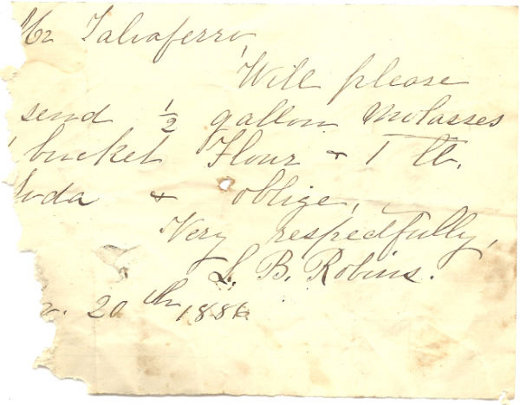 Mr Taliaferro,
Will please
send ½ gallon Molasses
bucket Flour + 1 lb.
Soda + oblige,
Very respectfully,
S. B. Robins.
20th 1886